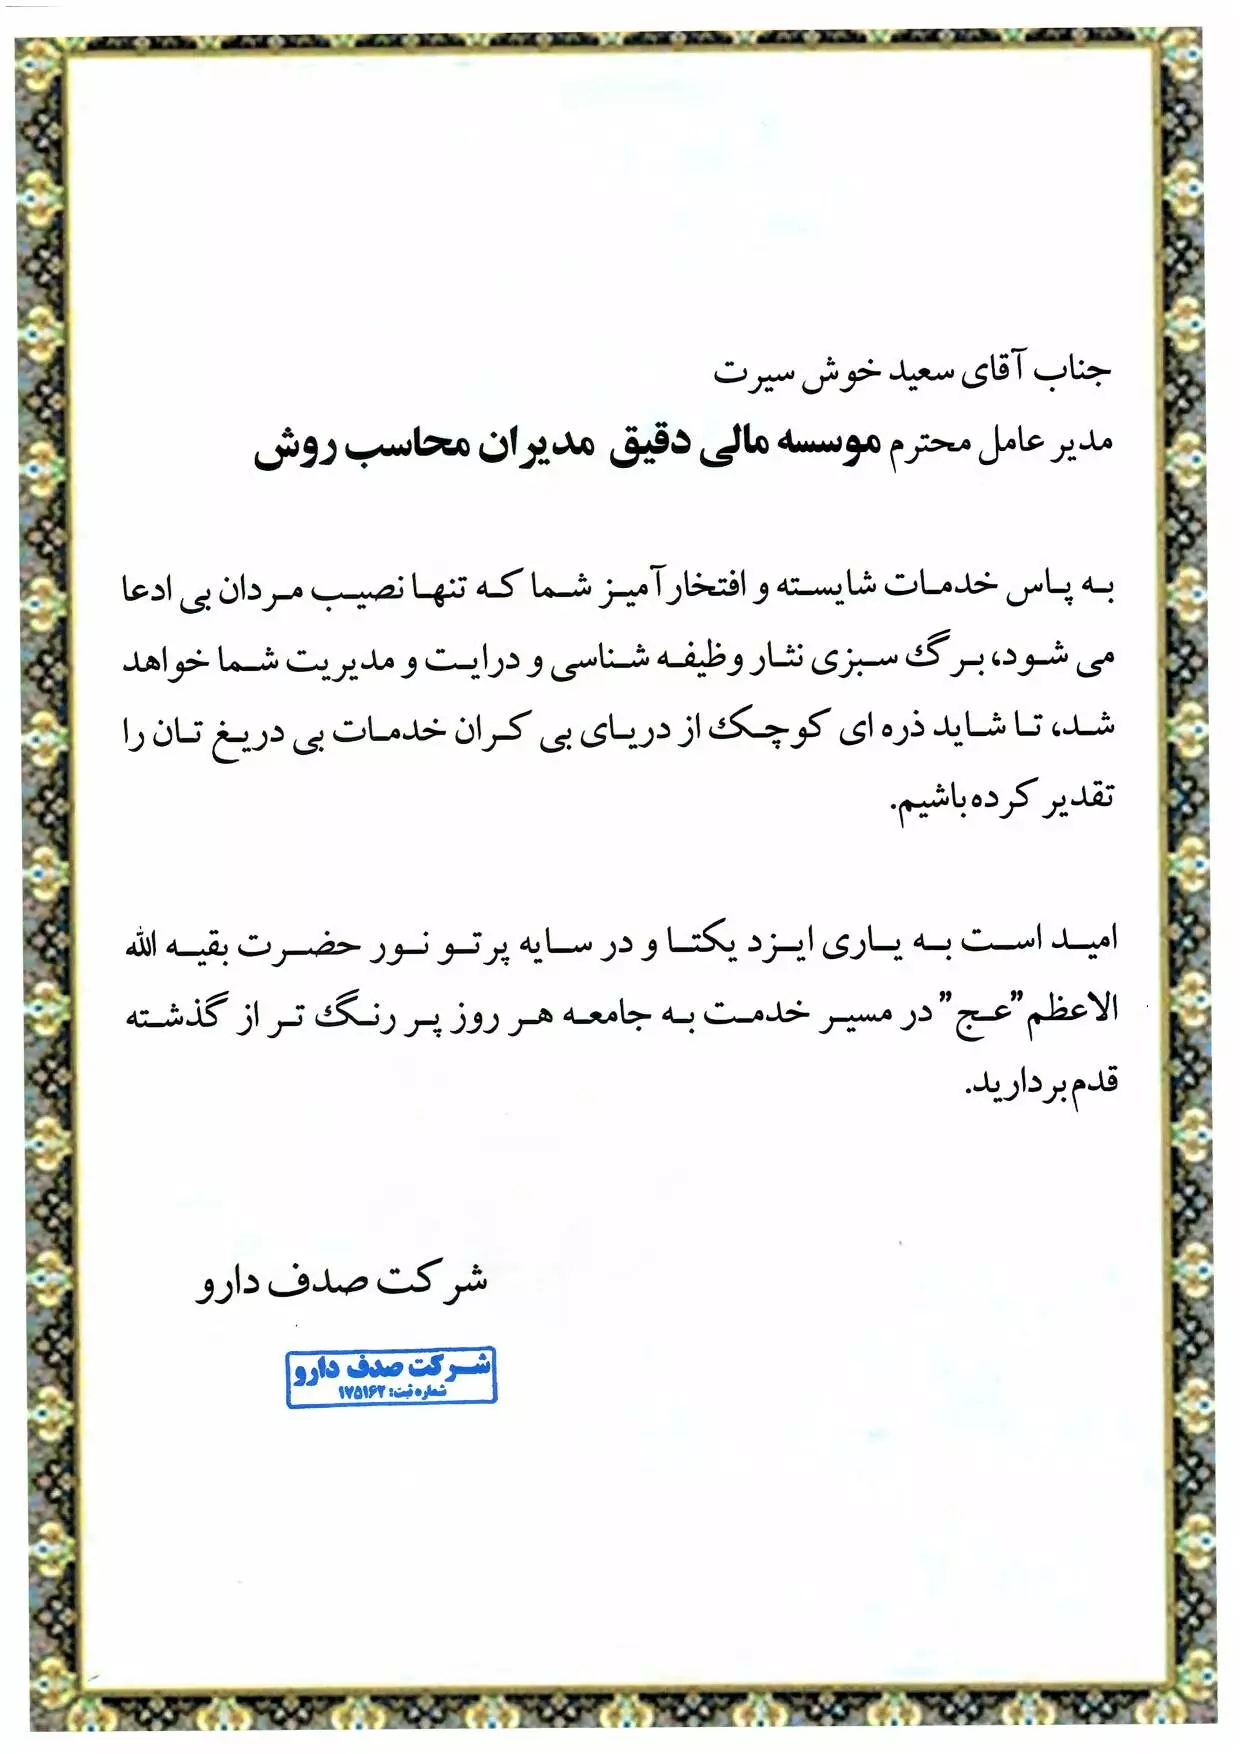 جناب آقای سعید خوش سیرت
مدیر عامل محترم موسسه مالی دقیق مدیران محاسب روش
به پاس خدمات شایسته و افتخارآمیز شما که تنها نصیب مردان بی ادعا
می شود، برگ سبزی نثار وظیفه شناسی و درایت و مدیریت شما خواهد
شد، تا شاید ذره ای کوچک از دریای بی کران خدمات بی دریغ تان را
تقدیر کرده باشیم.
امید است به یاری ایزد یکتا و در سایه پرتو نور حضرت بقیه الله
الاعظم"عج" در مسیر خدمت به جامعه هر روز پر رنگ تر از گذشته
قدم بردارید.
شرکت صدف دارو
شرکت صدف دارو
شماره ثبت: ۱۷۵۱۶۲